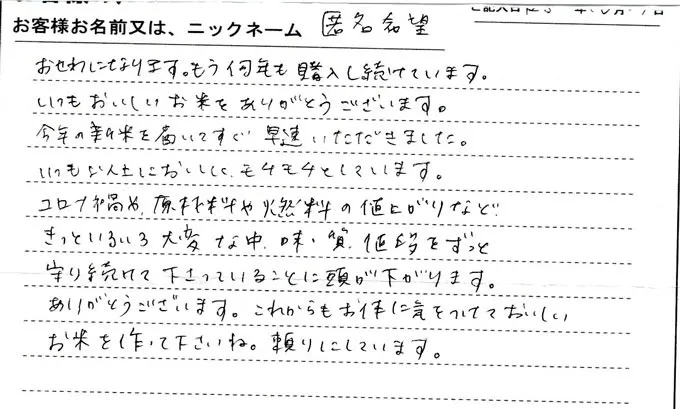 お客様お名前又は、ニックネーム 匿名希望
おせわになります。もう何年も購入し続けています。
いつもおいしいお米をありがとうございます。
今年の新米を届いてすぐ早速いただきました。
いつも以上においしく、モチモチとしています。
コロナ禍や、原材料や火燃料の値上がりなど
きっといろいろ大変な中、味・質、値段をずっと
守り続けて下さっていることに頭が下がります。
ありがとうございます。これからもお体に気をつけておいしい
お米を作って下さいね。頼りにしています。